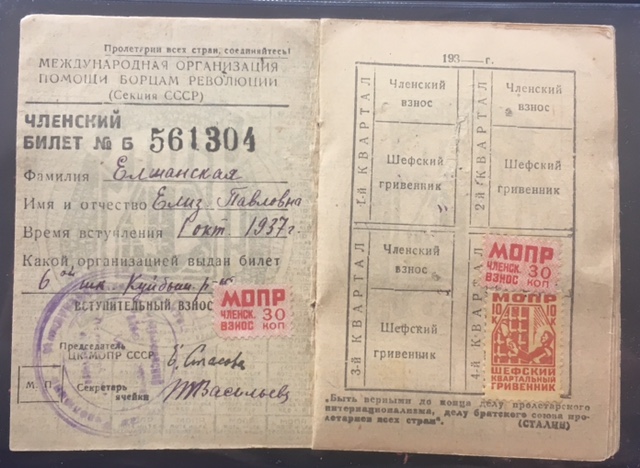 Пролетарии всех стран, соединяйтесь!
МЕЖДУНАРОДНАЯ ОРГАНИЗАЦИЯ
ПОМОЩИ БОРЦАМ РЕВОЛЮЦИИ
(Секция СССР)
ЧЛЕНСКИЙ
БИЛЕТ № Б 561304
Фамилия Елшанская
Имя и отчество Елиз. Павловна
Время вступления 1 окт. 1937г.
Какой организацией выдан билет
6ой шк. Куйбыш. р-на
ВСТУПИТЕЛЬНЫЙ ВЗНОС
МОПР
ЧЛЕНСК. 30
ВЗНОС КОП
Председатель
ЦК МОПР СССР Е. Стасова
М. П. Секретарь
ячейки Васильев
193 — г.
1-й КВАРТАЛ
Членский
взнос
Шефский
гривенник
2-й КВАРТАЛ
Членский
взнос
Шефский
гривенник
3-й КВАРТАЛ
Членский
взнос
Шефский
гривенник
4-й КВАРТАЛ
МОПР
ЧЛЕНСК. 30
ВЗНОС КОП
МОПР
10 К 10 К
ШЕФСКИЙ
КВАРТАЛЬНЫЙ
ГРИВЕННИК
„Быть верными до конца делу пролетарского
интернационализма, делу братского союза про-
летариев всех стран“. (СТАЛИН)